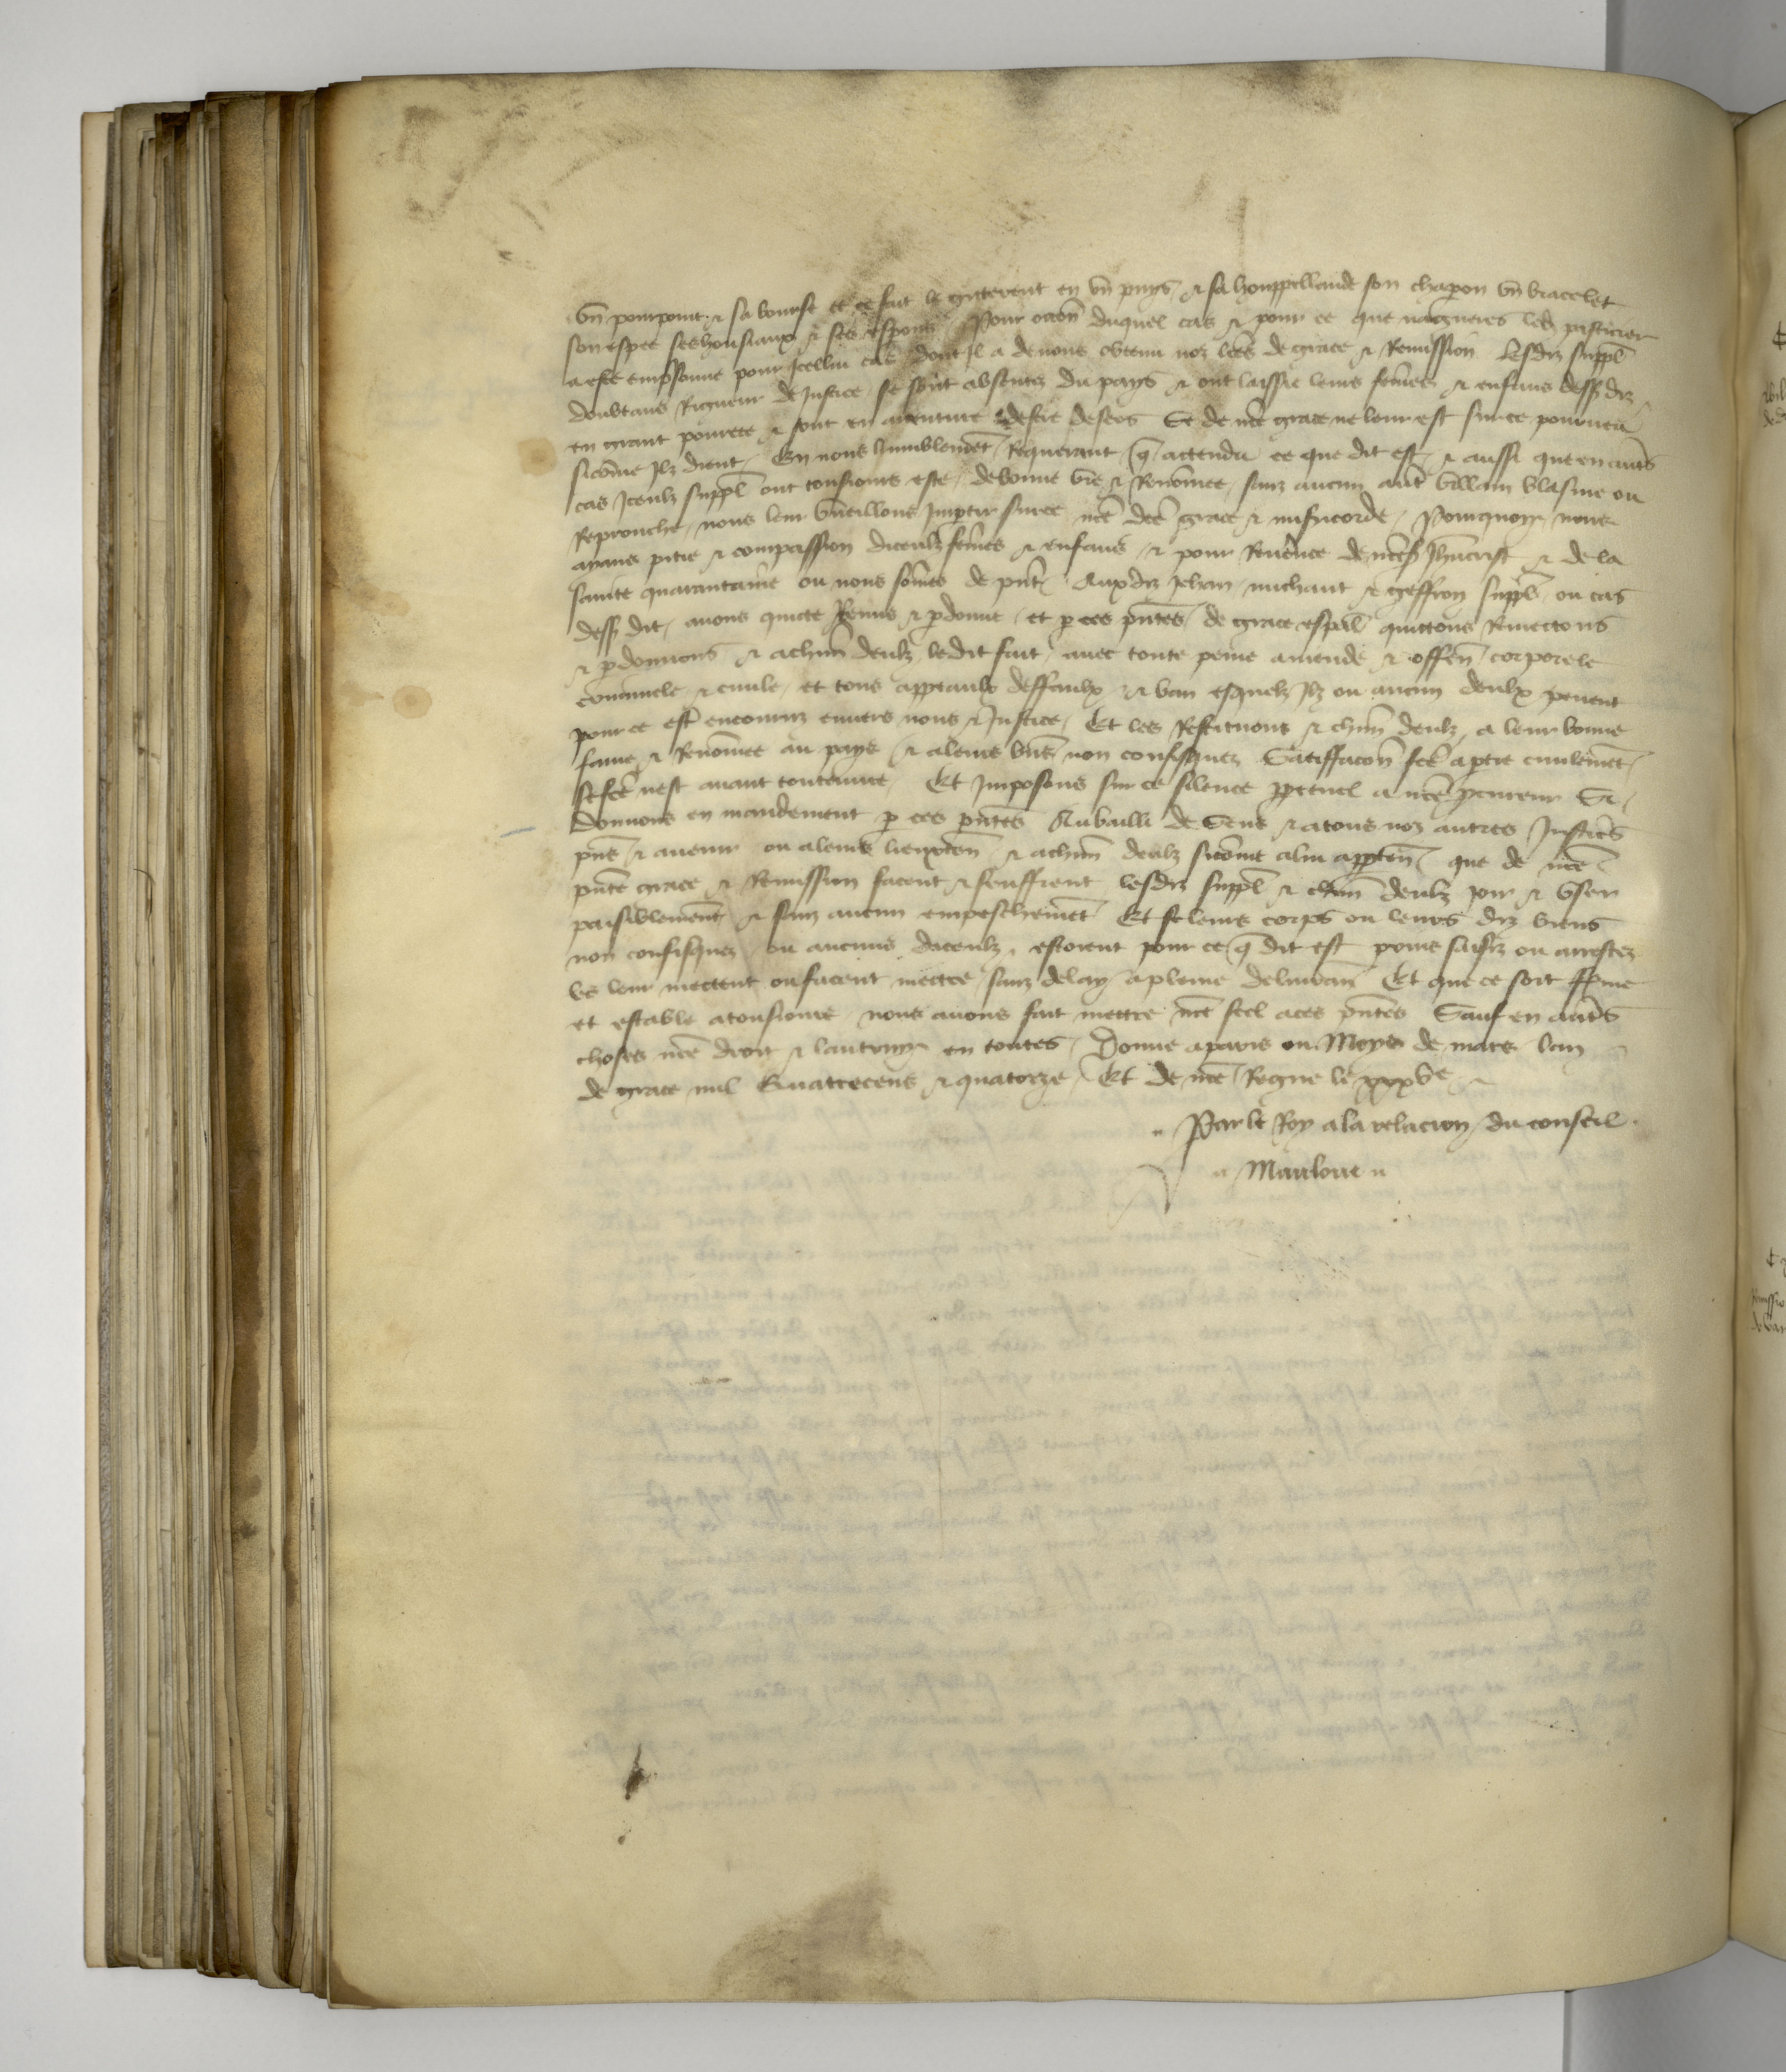 vn̄ pourpoint & sa bourse et ce fait le gicterent en vn̄ puys & sa houppellande son chaperon vn̄ bracelet
son espee ses housiaux & ses esperons Pour occōn duquel cas & pour ce que nagueres led
a este emprisonne pour icellui cas dont il a de nous obtenu noz lr̄es de grace & Remission Lesdiz suppl̄
doubtans Rigueur de justice se sont absentez du pays & ont laissie leurs fēmes & enfans dess diz
en grant pourete & sont en auenture destre desers Se de nr̄e grace ne leur est sur ce pourueu
sicōme Ilz dient En nous humblemēt Requerant q̄ attendu ce que dit est & aussi que en autr̄s
cas Iceulx suppl̄ ont tousiours este de bonne vie & Renōmee sanz aucun autr̄ villain blasme ou
Reprouche nous leur vueillons Impartir sur ce nr̄e dc̄e grace & misericorde Pourquoy nous
ayans pitie & compassion diceulx fēmes & enfans & pour Reuerēce de nr̄e s Ihūcrist & de la
sainte quarantaine ou nous sōmes de pn̄t Aux diz Jehan michaut & geffroy suppl̄ ou cas
dess dit auons quicte Remis & pdonne et p ces pn̄tes de grace espāl quictons Remectons
& pdonnons & achūn deulx ledit fait auec toute peine amende & offen̄ corporele
criminele & ciuile et tous appeaulx deffaulx & ban esquelx Ilz ou aucun deulx peuent
pour ce estr̄ encouruz enuers nous & Justice Et les Restituons & chūn deulx a leur bonne
fame & Renōmee au pays & a leurs biēs non confisquez Satiffacōn fc̄e a partie ciuilemēt
se fc̄e nest auant toute euure Et Imposons sur ce silence ppetuel a nr̄e pcureur Si
Donnons en mandement p ces pn̄tes Au bailli de Sens & a tous noz autres Justicr̄s
pn̄s & auenir ou a leurs lieuxten̄ & achūn deulx sicōme a lui apptn̄ que de nr̄e
pn̄te grace & Remission facent & seuffrent lesdiz suppl̄ & chūn deulx joir & vser
paisiblement & sanz aucun empeschemēt Et se leurs corps ou leurs diz biens
non confisquez ou aucuns diceulx estoient pour ce q̄ dit est prins saisiz ou arrestez
les leur mectent ou facent mectre sanz delay a pleine deliurān Et que ce soit ferme
et estable a tousiours nous auons fait mettre nr̄e seel a ces pn̄tes Sauf en autr̄s
choses nr̄e droit & lautruy en toutes Donne a paris ou Moys de mars Lan
de grace mil Quatrecens & quatorze Et de nr̄e Regne le xxxve
Par le Roy a la relacion du conseil
Mauloue